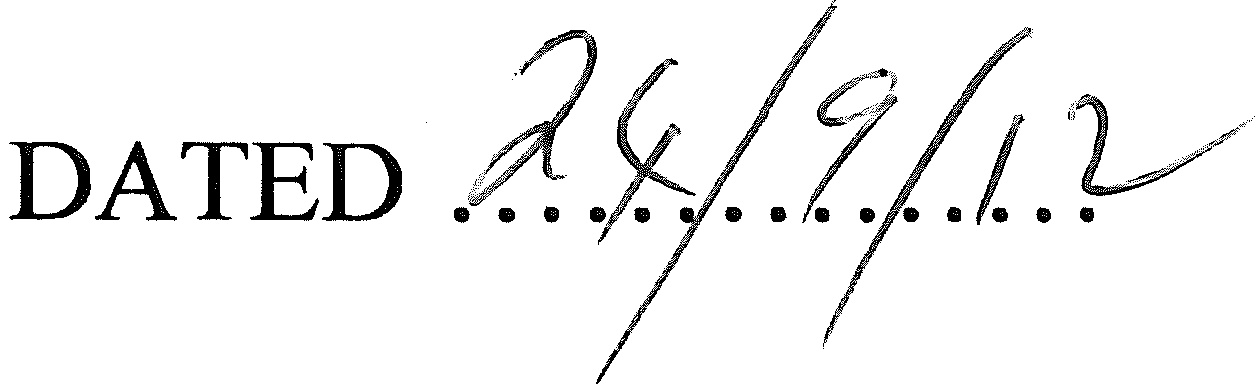 DATED 24/9/12